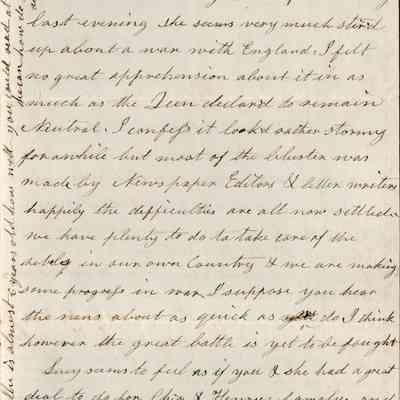 last evening she seems very much stir'd
up about a war with England, I felt
no great apprehension about it in as
much as the Queen declar'd to remain
Neutral. I confess it look'd rather stormy
for awhile but most of the bluster was
made by News paper Editors & letter writers
happily the difficulties are all now settled
we have plenty to do to take care of the
in our own Country & we are making
some progress in war, I suppose you hear
the news about as quick as we do I think
however the great battle is yet to be fought
Lucy seems to feel as if you & she had a great
deal to do for